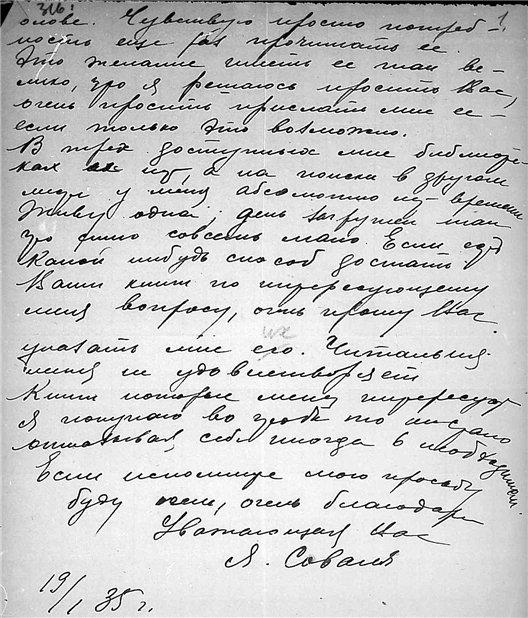 316:
1
олове. Чувствую просто потреб-
ность еще раз прочитать ее.
Это желание иметь ее так ве-
лико, что я решаюсь просить Вас,
очень просить прислать мне ее –
если только это возможно.
В трех доступных мне библиоте-
ках их нет, а на поиски в другом
месте у меня абсолютно нет времени
Живу одна; день загружен так
что сплю совсем мало. Если есть
какой нибудь способ достать
Ваши книги по интересующему
меня вопросу, очень прошу Вас
их
указать мне его. Читальня
меня не удовлетворяет
Книги которые меня интересуют
я покупаю во чтобы то ни стало
отказывая себе иногда в необходимом.
Если исполните мою просьбу
буду очень, очень благодарна
Уважающая Вас
Я. Соваля
19/I 35 г.